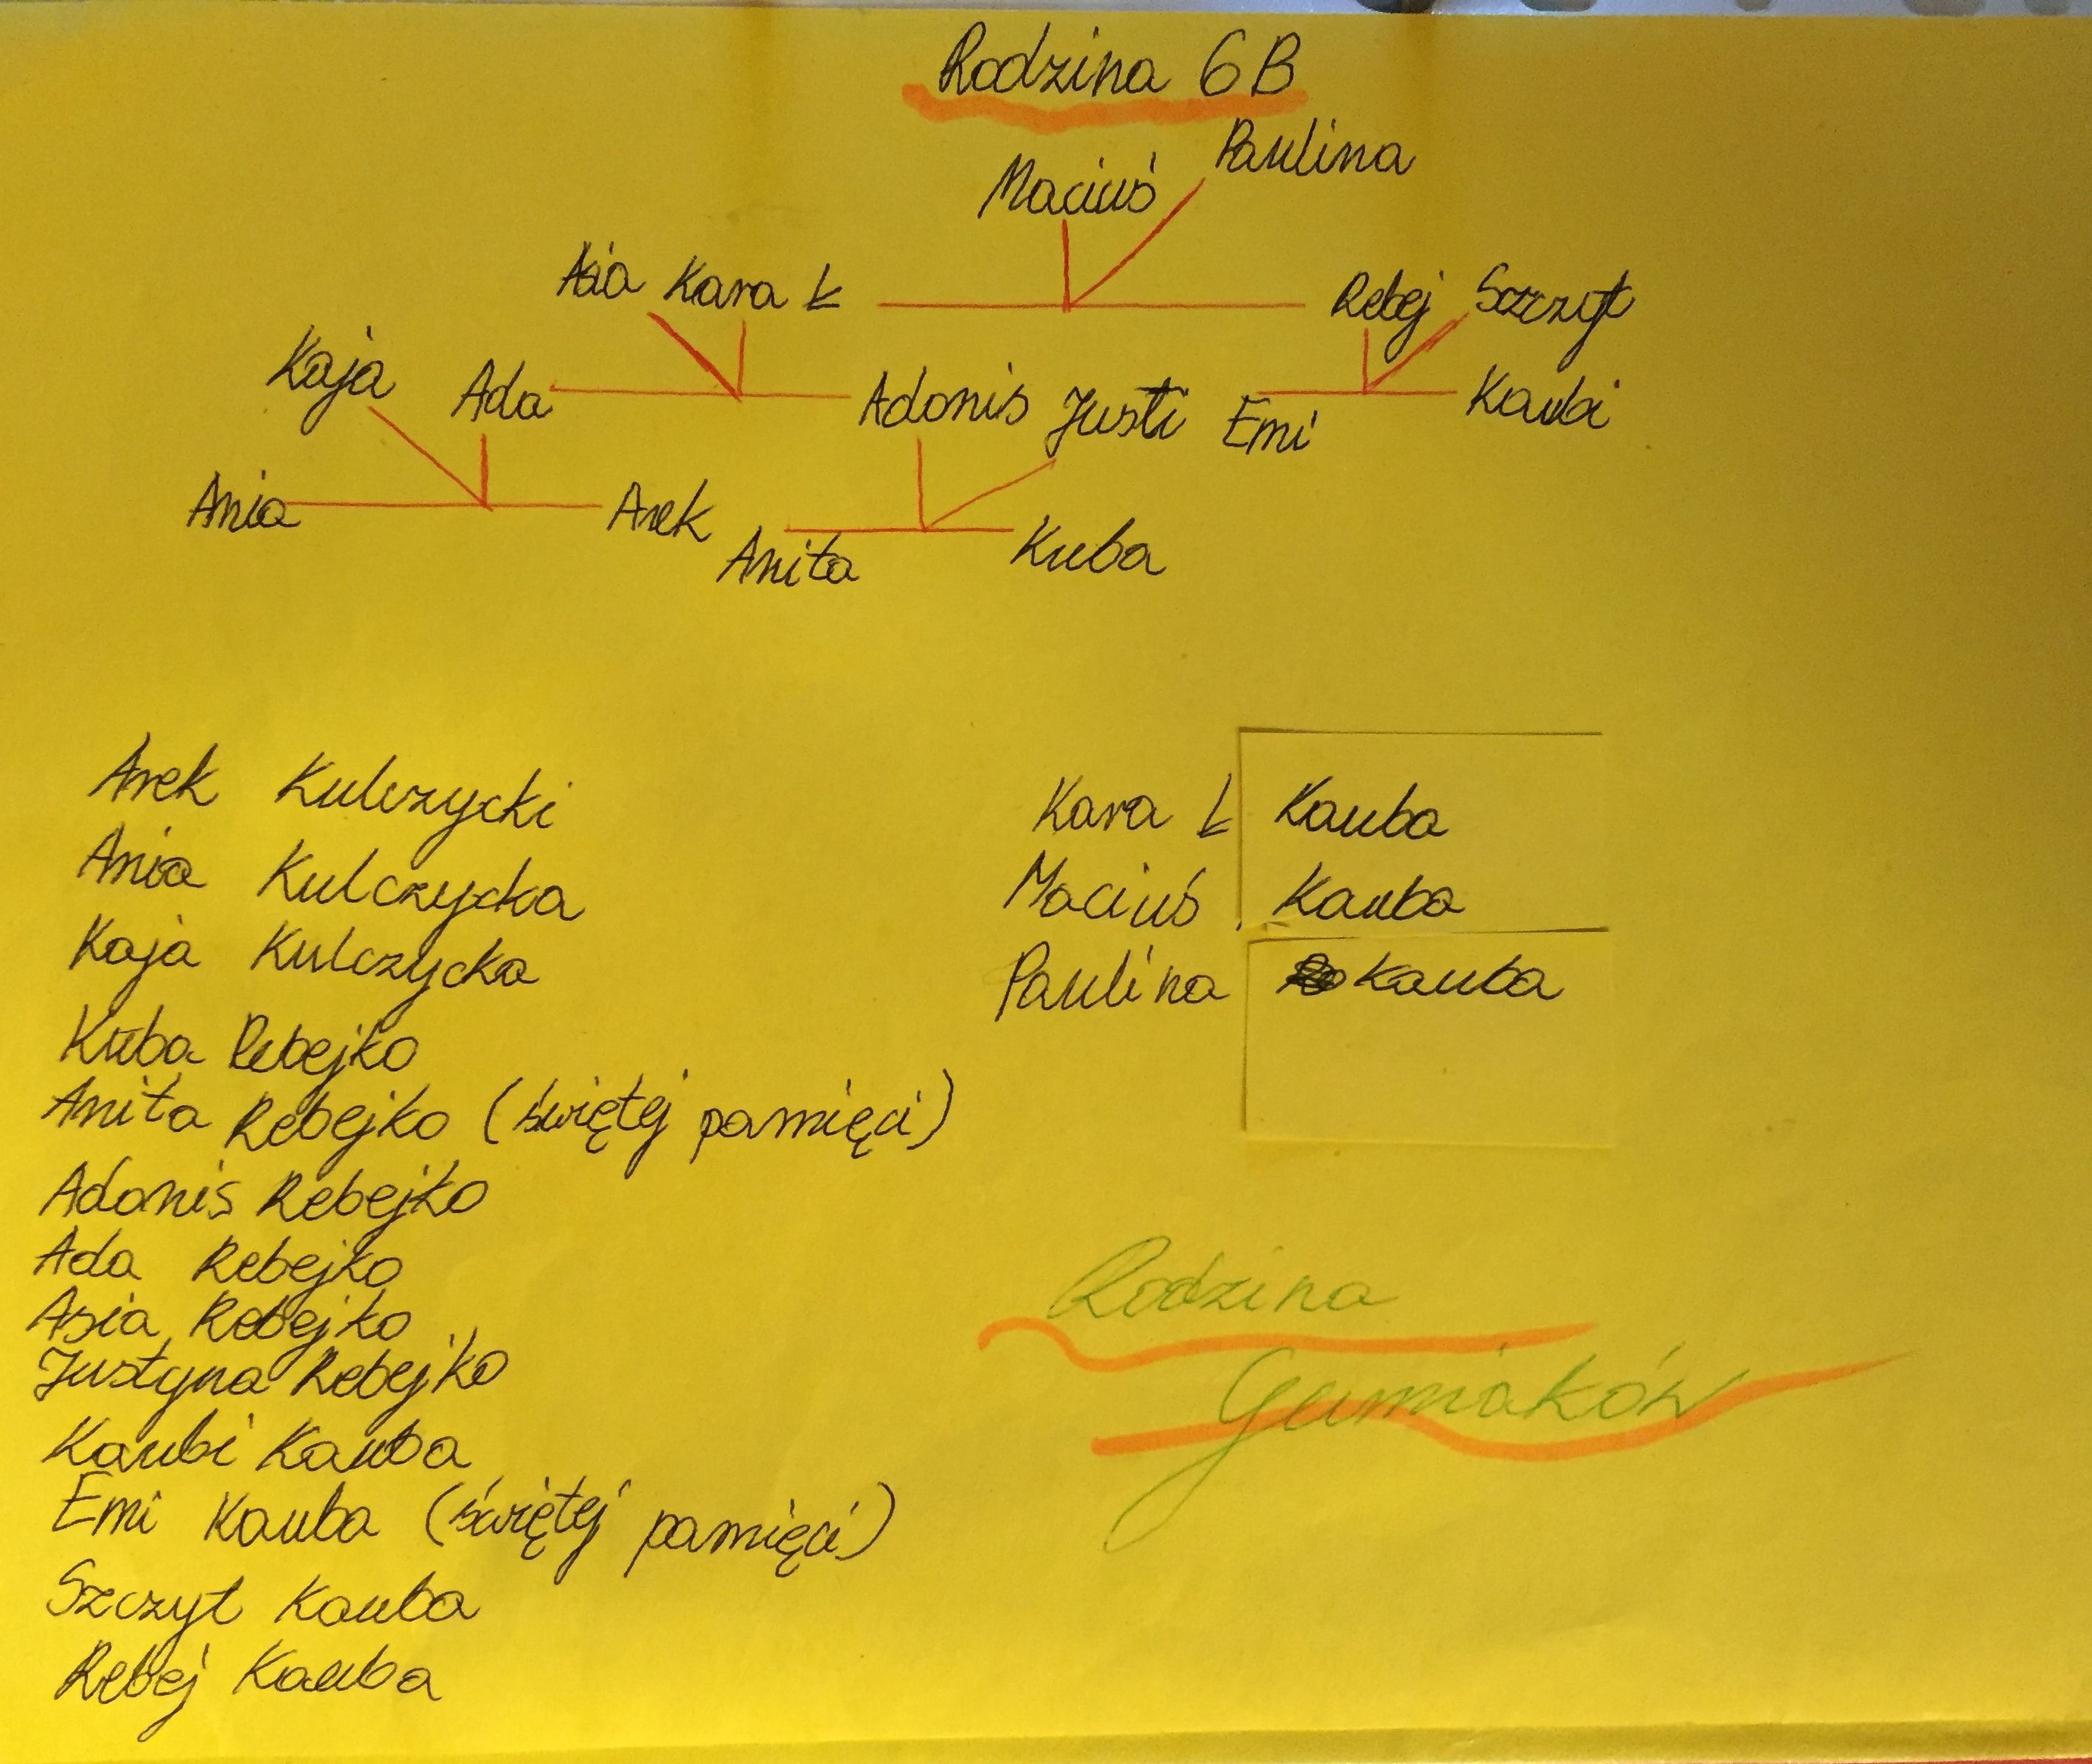 Rodzina 6B
Paulina
Maciuś
Asia Kara Ł
Rebej Szczyt
Kaja
Ada
Adonis Justi Emi
Kaubi
Ania
Arek
Anita
Kuba
Arek Kulczycki
Ania Kulczycka
Kaja Kulczycka
Kuba Rebejko
Anita Rebejko (świętej pamięci)
Adonis Rebejko
Ada Rebejko
Asia Rebejko
Justyna Rebejko
Kaubi Kauba
Emi Kauba (świętej pamięci)
Szczyt Kauba
Rebej Kauba
Kara Ł Kauba
Maciuś Kauba
Paulina Kauba
Rodzina